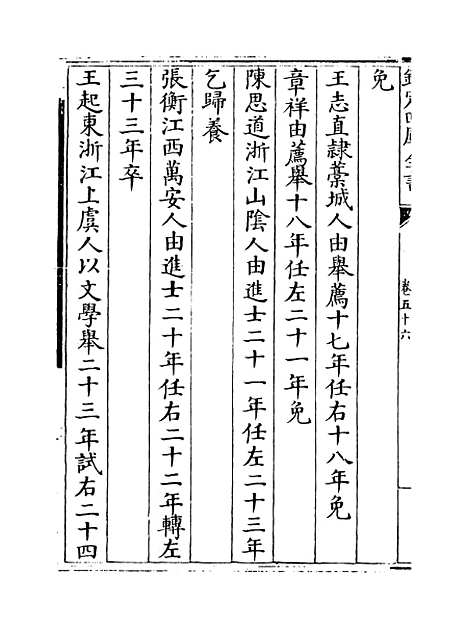 欽定四庫全書
卷五十六
免
王志直隸藁城人由舉薦十七年任右十八年免
章祥由薦舉十八年任左二十一年免
陳思道浙江山陰人由進士二十一年任左二十三年
乞歸養
張衡江西萬安人由進士二十年任右二十二年轉左
三十三年卒
王起東浙江上虞人以文學舉二十三年試右二十四